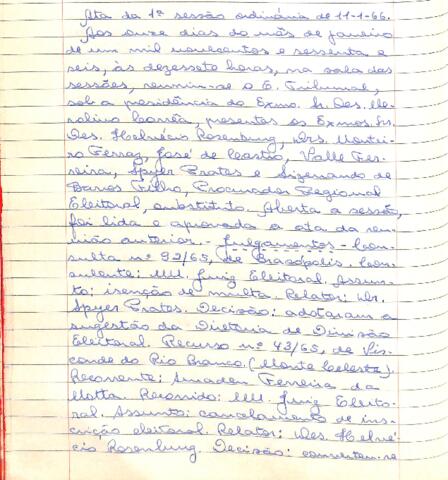 Ata da 1ª sessão ordinária de 11-1-66.
Aos onze dias do mês de janeiro
de um mil novecentos e sessenta e
seis, às dezessete horas, na sala das
sessões, reuniu-se o E. Tribunal,
sob a presidência do Exmo. Sr. Des. Me-
rolino Corrêa, presentes os Exmos. Sr.
Des. Helvécio Rosenburg, Drs. Montei-
ro Ferraz, José de Castro, Valle Fer-
reira, Spyer Prates e Sizenando de
Barros Filho, Procurador Regional
Eleitoral, substituto. Aberta a sessão,
foi lida e aprovada a ata da reu-
nião anterior. - Julgamentos - Con-
sulta nº 92/65, de Brasópolis. Con-
sulente: MM. Juiz Eleitoral. Assun-
to: isenção de multa. Relator: Dr.
Spyer Prates. Decisão: adotaram a
sugestão da Diretoria de Divisão
Eleitoral. Recurso nº 43/65, de Vis-
conde do Rio Branco. (Monte Celeste).
Recorrente: Amadeu Ferreira da
Motta. Recorrido: MM. Juiz Eleito-
ral. Assunto: cancelamento de ins-
crição eleitoral. Relator: Des. Helvé-
cio Rosenburg. Decisão: converteu-se